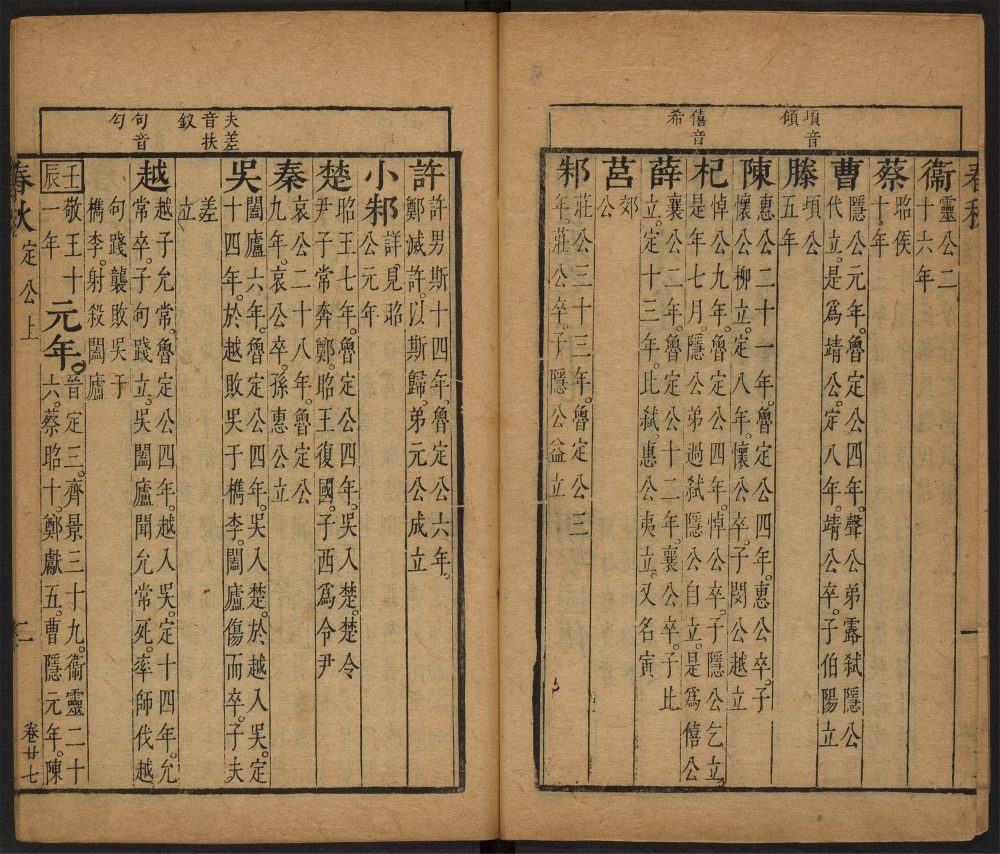 項音
傾
僖音
希
春秋
衞靈公二
十六年
蔡昭侯
十年
曹隱公元年。魯定公四年。聲公弟露弑隱公
代立。是爲靖公。定八年。靖公卒。子伯陽立
滕頃公
五年
陳惠公二十一年。魯定公四年。惠公卒。子
懷公柳立。定八年。懷公卒。子閔公越立
杞悼公九年。魯定公四年。悼公卒。子隱公乞立。
是年七月。隱公弟過弑隱公自立。是爲僖公
薛襄公二年。魯定公十二年。襄公卒。子比
立。定十三年。比弑。惠公夷立。又名寅
莒郊
公
邾莊公三十三年。魯定公三
年。莊公卒。子隱公益立
一
夫差
音扶
釵
句音
勾
許許男斯十四年。魯定公六年。
鄭滅許。以斯歸。弟元公成立
小邾詳見昭
公元年
楚昭王七年。魯定公四年。吳入楚。楚令
尹子常奔鄭。昭王復國。子西爲令尹
秦哀公二十八年。魯定公
九年。哀公卒。孫惠公立
吳闔廬六年。魯定公四年。吳入楚。於越入吳。定
十四年。於越敗吳于檇李。闔廬傷而卒。子夫
差
立
越越子允常。魯定公四年。越入吳。定十四年。允
常卒。子句踐立。吳闔廬聞允常死。率師伐越
句踐襲敗吳于
檇李。射殺闔廬
壬辰
敬王十
一年
元年。
晉定三。齊景三十九。衞靈二十
六。蔡昭十。鄭獻五。曹隱元年。陳
春秋 定公上 二 卷廿七